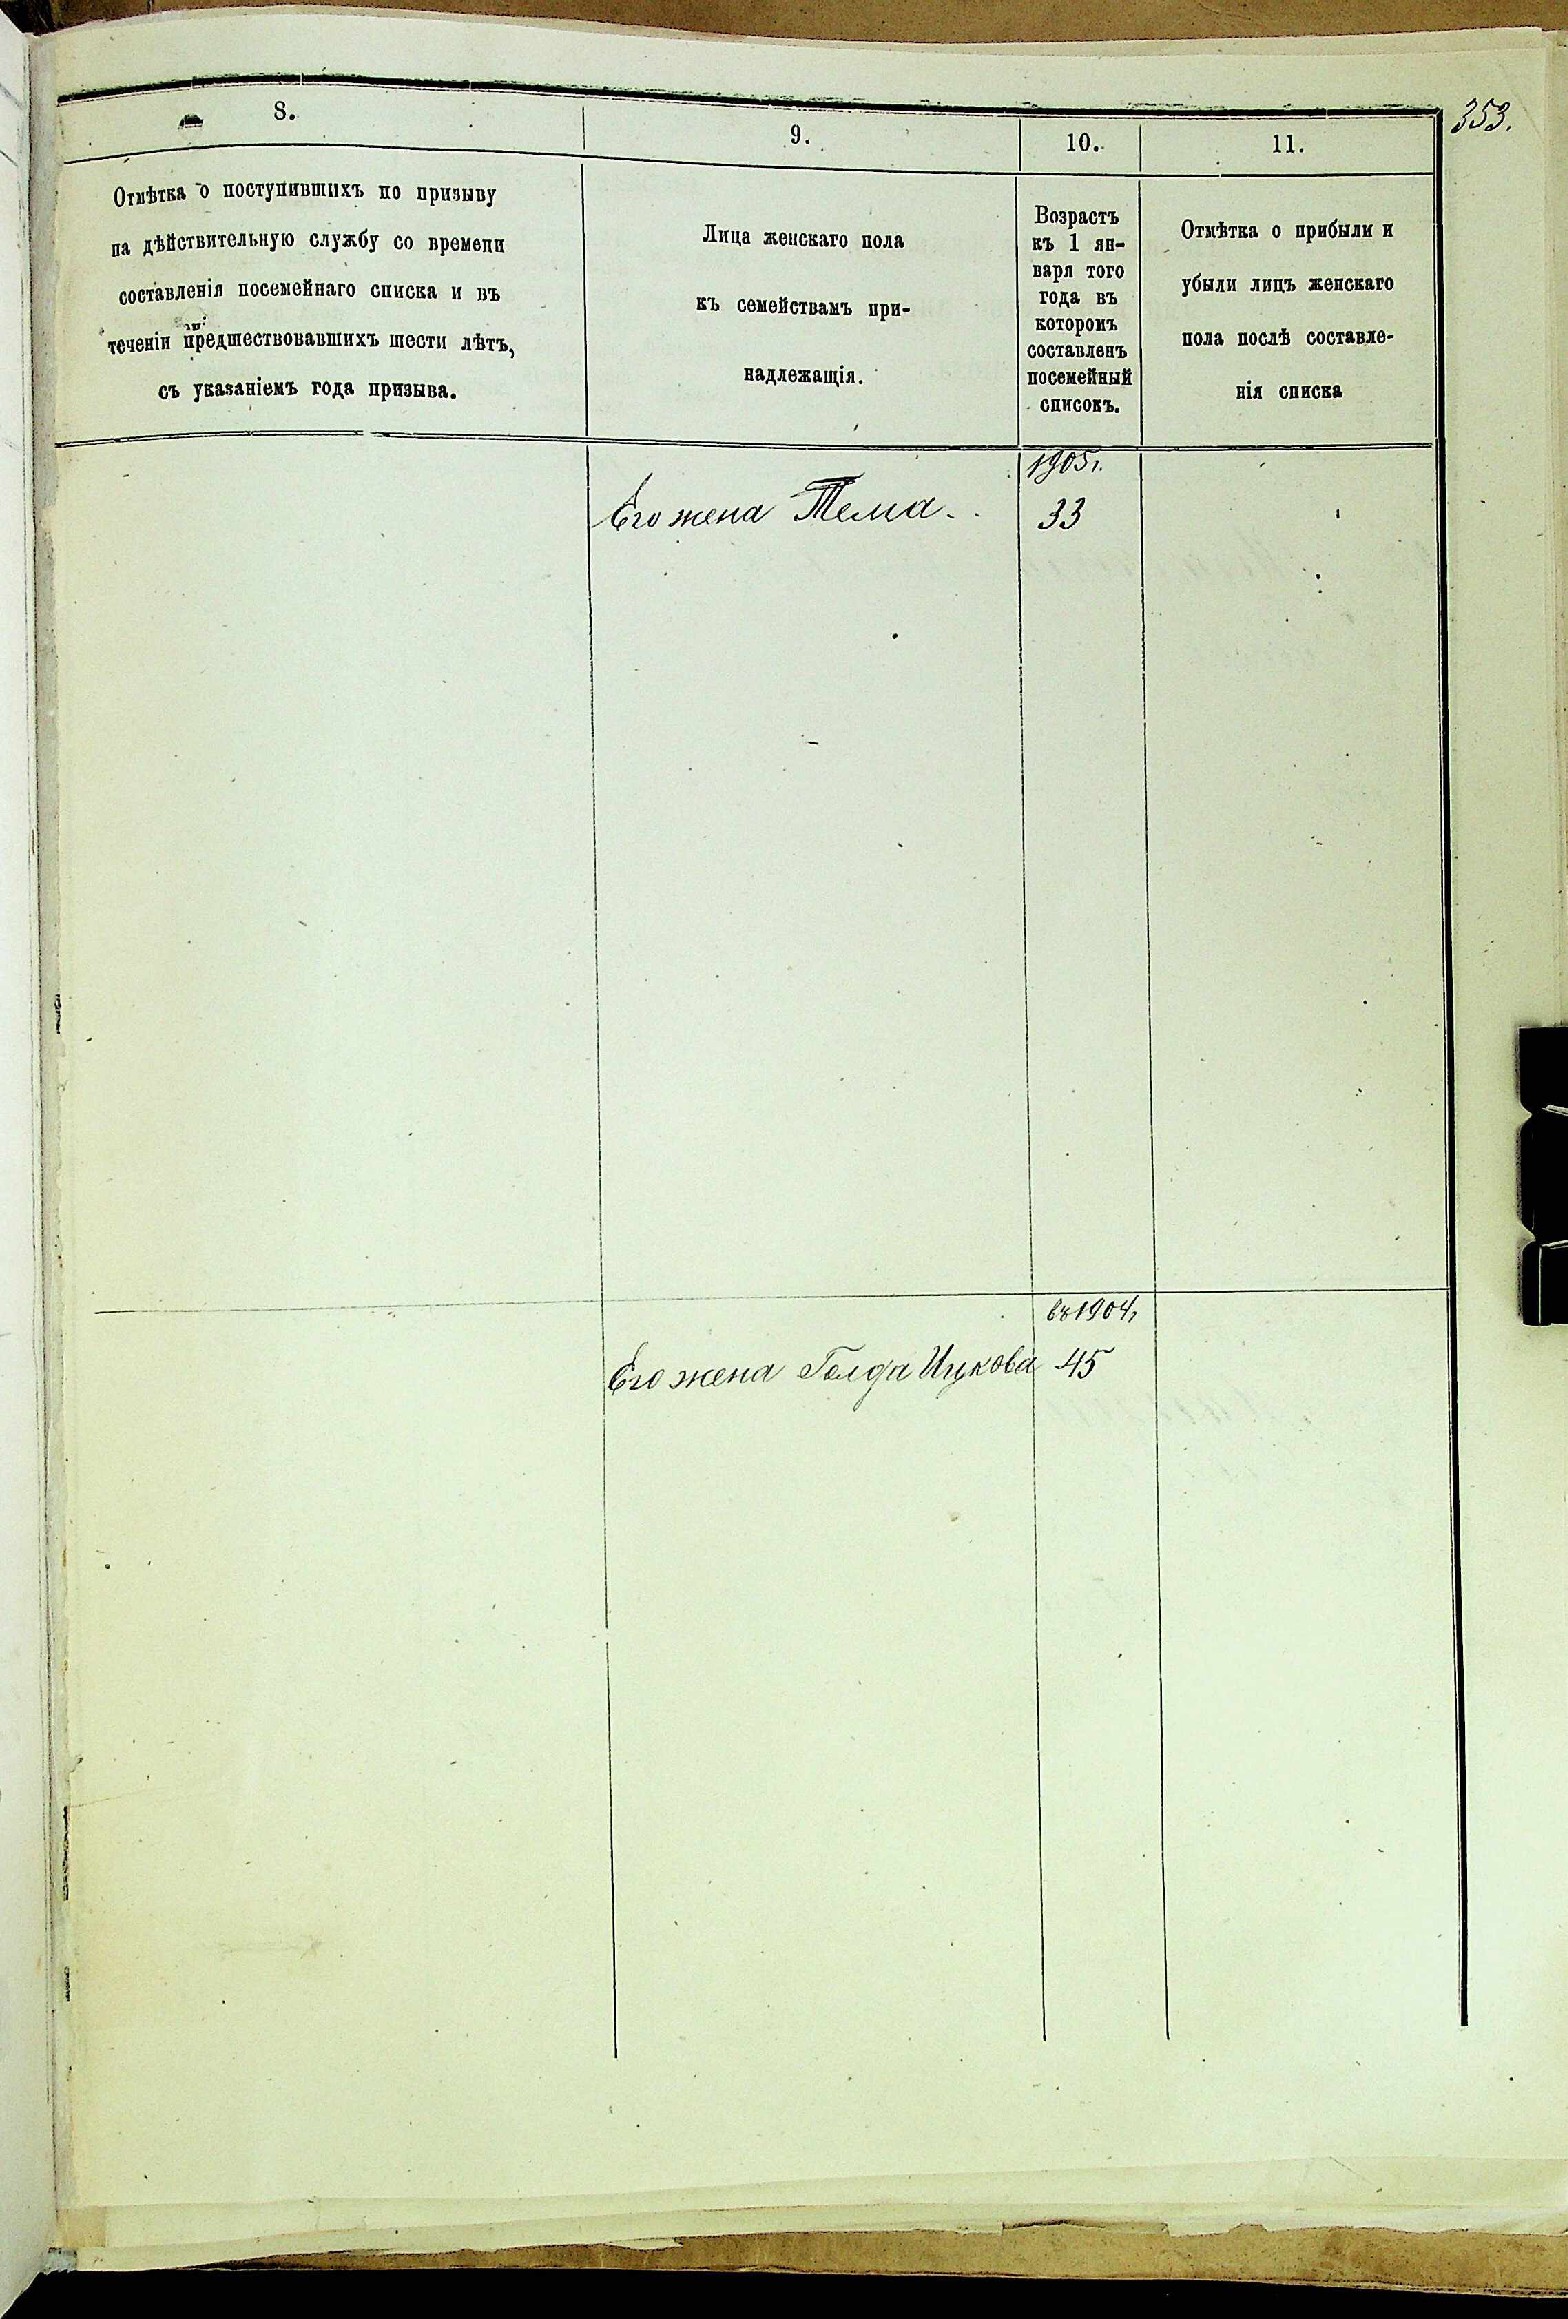 353.
8.
9.
10.
11.
Отмѣтка о поступившихъ по призыву
на дѣйствительную службу со времени
составленія посемейнаго списка и въ
теченіи предшествовавшихъ шести лѣтъ,
съ указаніемъ года призыва.
Лица женскаго пола
къ семействамъ при-
надлежащія.
Возрастъ
къ 1 ян-
варя того
года въ
которомъ
составленъ
посемейный
списокъ.
Отмѣтка о прибыли и
убыли лицъ женскаго
пола послѣ составле-
нія списка
1905г.
Его жена Тема 33
въ 1904г
Его жена Голда Ицкова 45